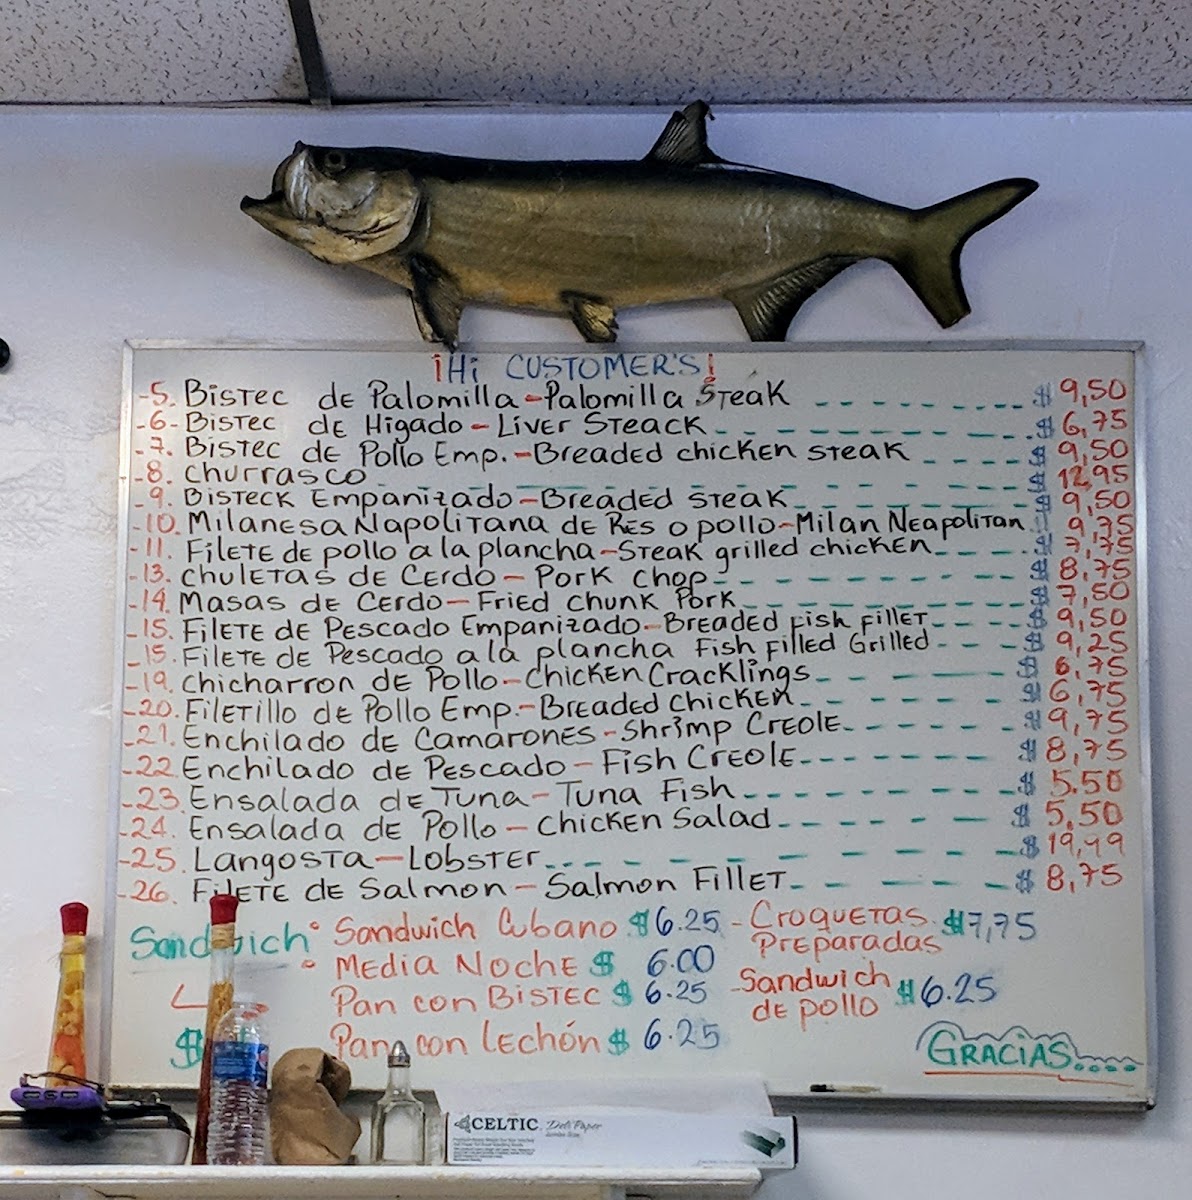 ¡Hi CUSTOMER'S!
-5. Bistec de Palomilla-Palomilla Steak $ 9,50
-6- Bistec de Higado-Liver Steack $ 6,75
-7. Bistec de Pollo Emp.-Breaded chicken steak $ 9,50
-8. Churrasco $ 12,95
-9. Bisteck Empanizado-Breaded steak $ 9,50
-10. Milanesa Napolitana de Res o pollo-Milan Neapolitan $ 9,75
-11. Filete de pollo a la plancha-Steak grilled chicken $ 7,75
-13. Chuletas de Cerdo-Pork Chop $ 8,75
-14. Masas de Cerdo-Fried Chunk Pork $ 7,50
-15. Filete de Pescado Empanizado-Breaded Fish fillet $ 9,50
-15. Filete de Pescado a la plancha Fish Filled Grilled $ 9,25
-19. Chicharron de Pollo-Chicken Cracklings $ 6,75
-20. Filetillo de Pollo Emp.-Breaded Chicken $ 6,75
-21. Enchilado de Camarones-Shrimp Creole $ 9,75
-22 Enchilado de Pescado-Fish Creole $ 8,75
-23. Ensalada de Tuna-Tuna Fish $ 5.50
-24. Ensalada de Pollo-Chicken Salad $ 5,50
-25. Langosta-Lobster $ 19,99
-26. Filete de Salmon-Salmon Fillet $ 8,75
Sandwich
Sandwich Cubano $ 6.25
Media Noche $ 6.00
Pan con Bistec $ 6.25
Pan con Lechón $ 6.25
- Croquetas Preparadas $ 7,75
- Sandwich de pollo $ 6.25
$
Gracias.....
CELTIC Deli Paper